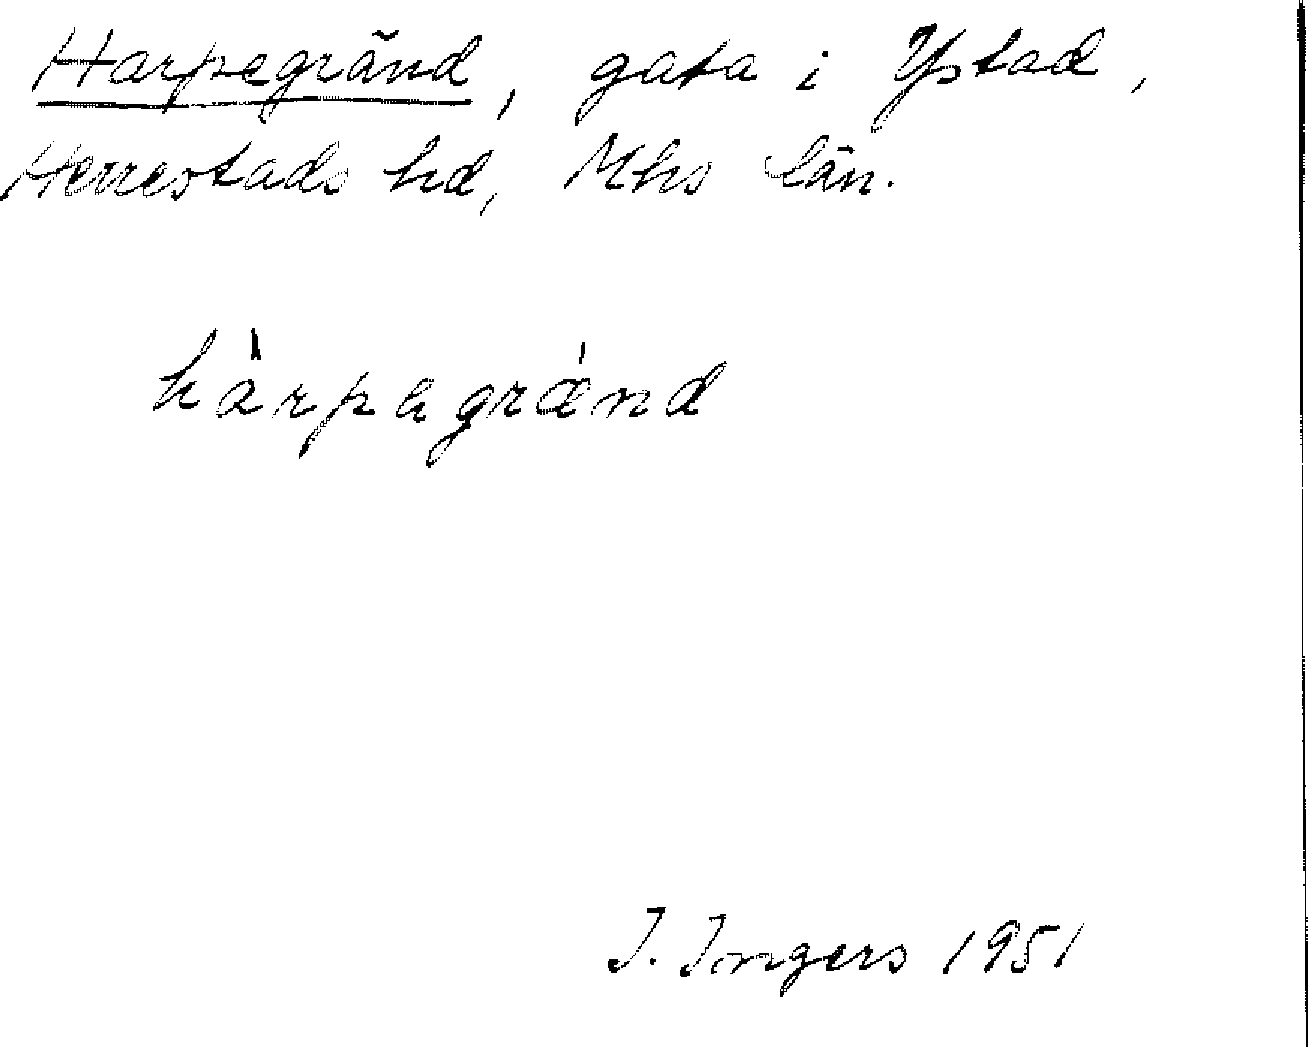 Harpegränd, gata i Ystad,
Herrestads hd, Mhs län.
hàrpagrǽnd
I. Ingers 1951